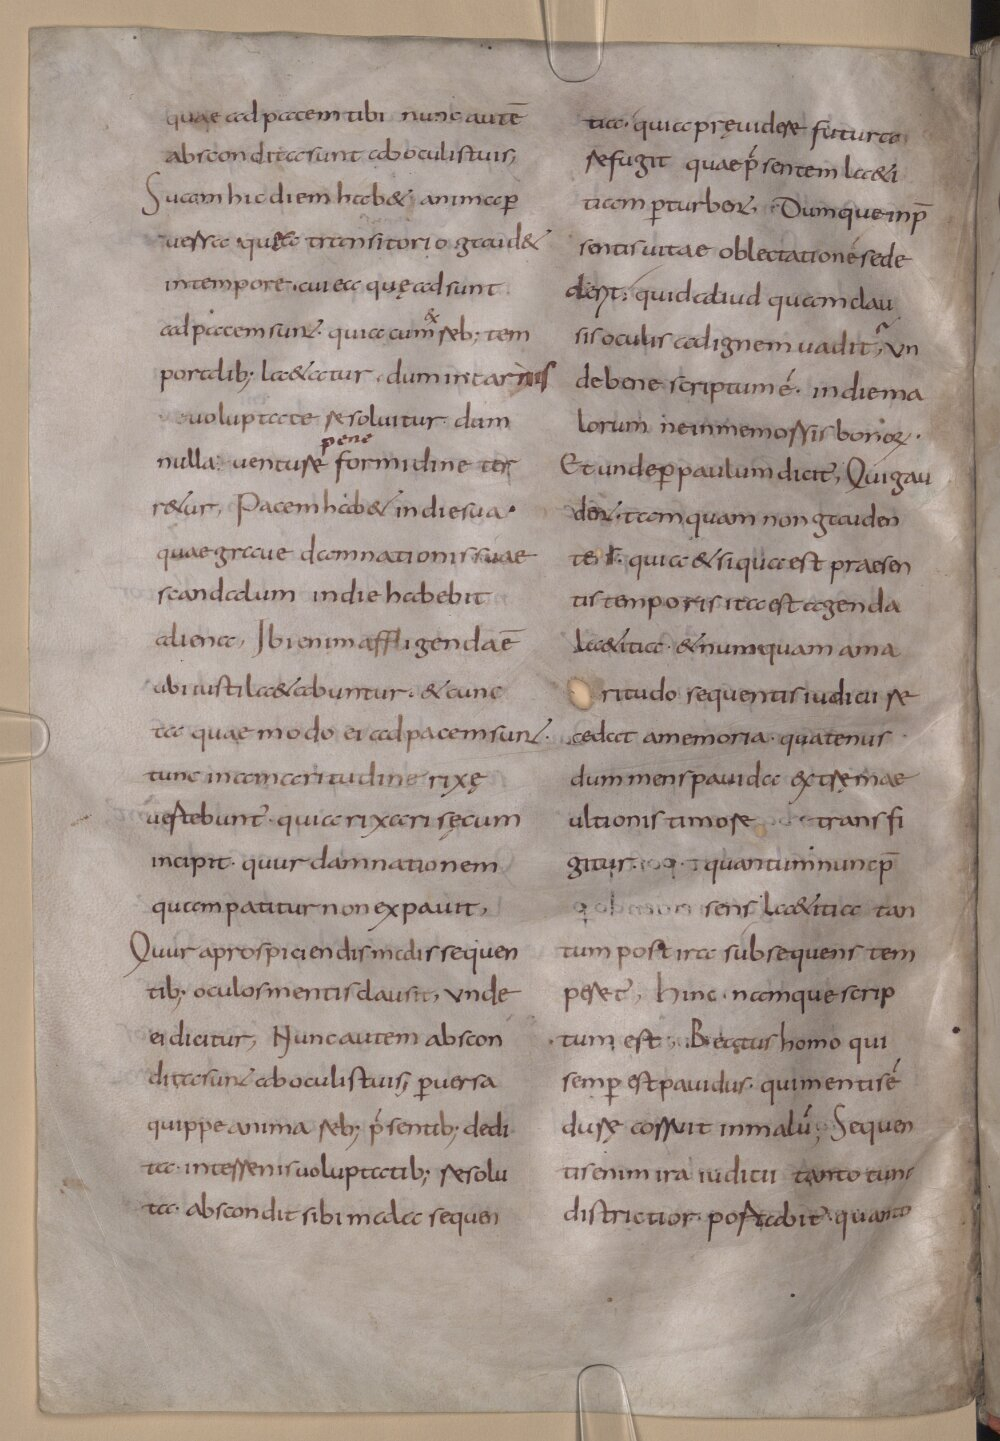 quae ad pacem tibi nunc autē
abscondita sunt ab oculis tuis;
Suam hic diem hab& anima p̲
uersa quę transitorio gaud&
in tempore. cui ea quę ad sunt
ad pacem sunt. quia cum ex reb; tem
poralib; la&atur. dum in carnis
uoluptate resoluitur dum
nulla uenture pene formidine ter
r&ur, Pacem hab& in die sua.
quae graue damnationis suae
scandalum in die habebit
aliena, Ibi enim affligenda ē
ubi iusti la&abuntur. & cunc
ta quae modo ei ad pacem sunt.
tunc in amaritudine rixę
uertebunt. quia rixari sęcum
incipit. quur damnationem
quam patitur non expauit,
Quur a prospiciendis malis sequen
tib; oculos mentis clausit, Vnde
ei dicitur, Nunc autem abscon
dita sunt ab oculis tuis; p̲uersa
quippe anima reb; p̄sentib; dedi
ta. in terrenis uoluptatib; resolu
ta. abscondit sibi mala sequen
tia. quia pręuidere futura
refugit quae p̄sentem la&i
tiam p̲turbent, Dumque in p̄
sentis uitae oblectatione se de
derit. quid aliud quam clau
sis oculis ad ignem uadit, Vn
de bene scriptum ē. in die ma
lorum ne inmemor sis bonorum.
Et unde p̲ paulum dicit, Qui gau
dent. tamquam non gauden
tes s̄. quia & si qua est praesen
tis temporis ita est agenda
la&itia. & numquam ama
ritudo sequentis iudicii re
cedat a memoria. quatenus
dum mens pauida extremae
ultionis timore transfi
gitur. quantum nunc p̄
sens la&itia tan
tum post ira subsequens tem
peret, Hinc namque scrip
tum est. Beatus homo qui
semper est pauidus. qui mentis ē
durę corruit in malū, Sequen
tis enim ira iudicii tanto tunc
districtior portabit. quanto